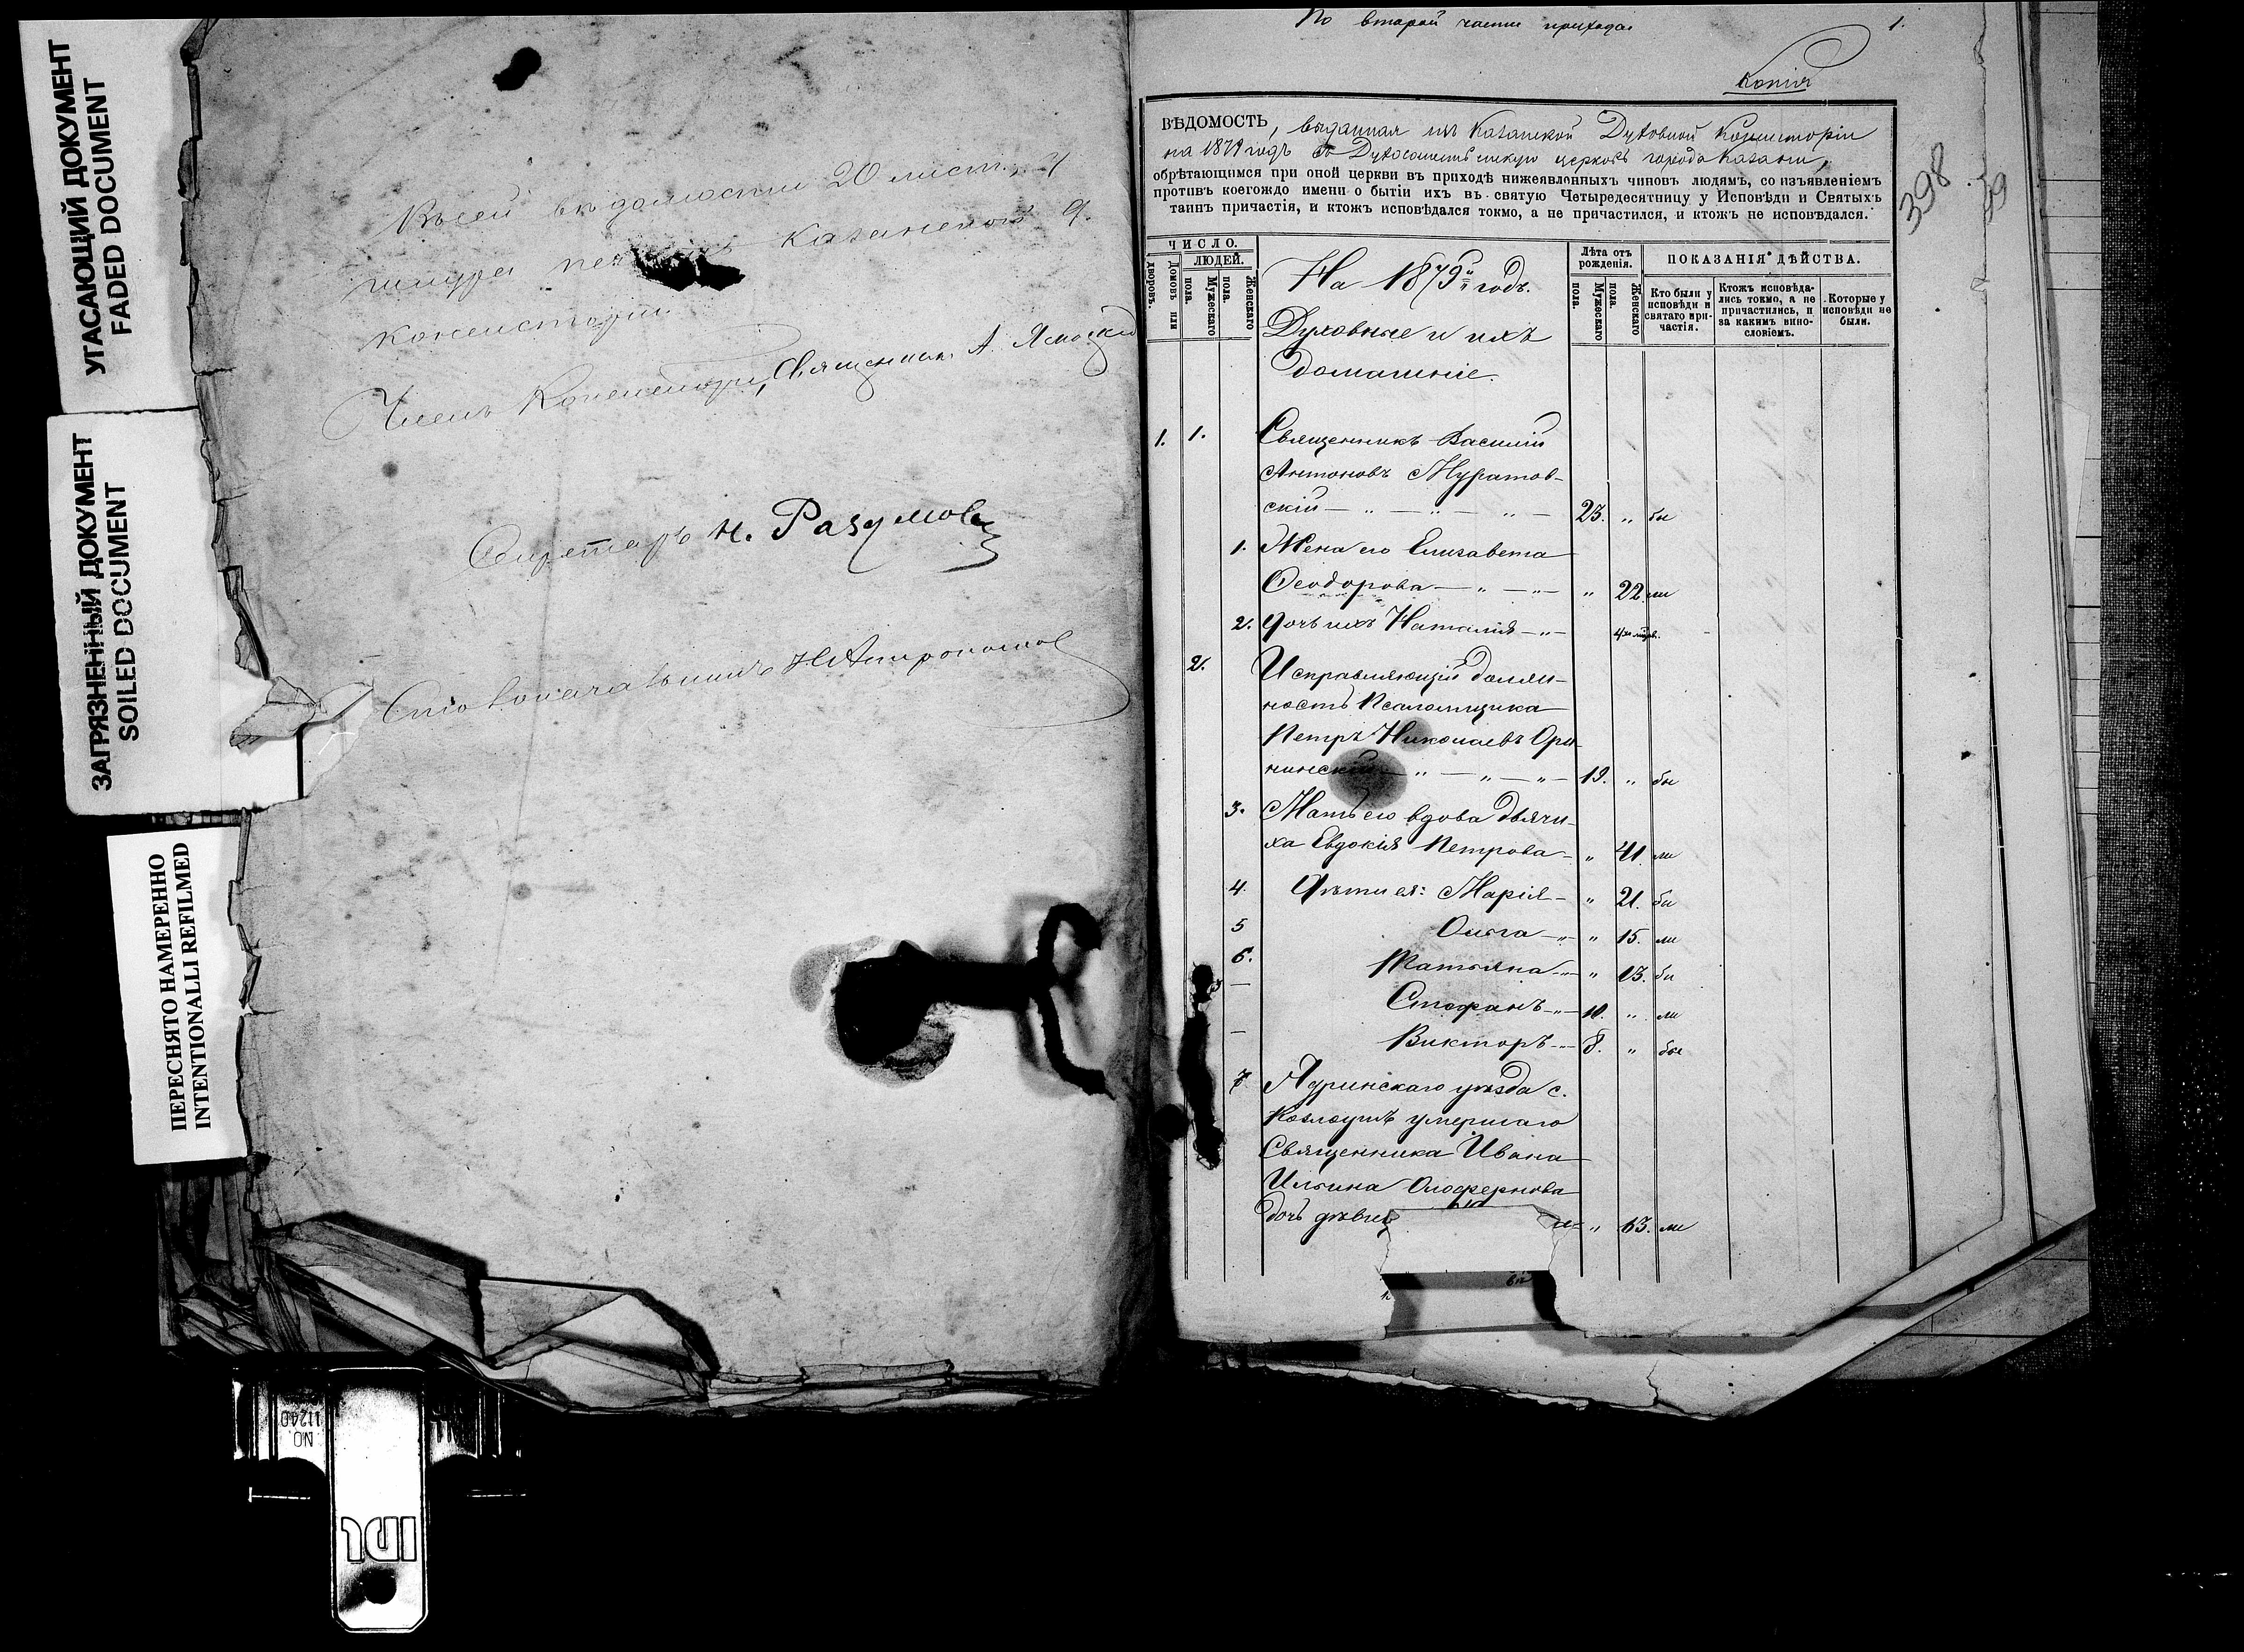 УГАСАЮЩИЙ ДОКУМЕНТ
FADED DOCUMENT
ЗАГРЯЗНЕННЫЙ ДОКУМЕНТ
SOILED DOCUMENT
ПЕРЕСНЯТО НАМЕРЕННО
INTENTIONALLI REFILMED
NO
11240
IDC
Въ сей вѣдомости 20 лист., и
шнура Казанской Д.
консисторіи
Членъ Консисторіи, Священникъ А.
Секретарь Н. Разумов
Столоначальникъ Н
По второй части прихода
1.
Копія
398
ВѢДОМОСТЬ, выданная изъ Казанской Духовной Консисторіи
на 1879 годъ въ Духосошественскую церковь города Казани,
обрѣтающимся при оной церкви въ приходѣ нижеявленныхъ чиновъ людямъ, со изъявленіемъ
противъ коегождо имени о бытіи ихъ въ святую Четыредесятницу у Исповѣди и Святыхъ
таинъ причастія, и ктожъ исповѣдался токмо, а не причастился, и ктожъ не исповѣдался.
ЧИСЛО.
ЛЮДЕЙ.
Домовъ или дворовъ.
Мужескаго пола.
Женскаго пола.
Лѣта отъ рожденія.
Мужескаго пола.
Женскаго пола.
ПОКАЗАНІЯ ДѢЙСТВА.
Кто были у исповѣди и святаго причастія.
Ктожъ исповѣдались токмо, а не причастились, и за какимъ винословіемъ.
Которые у исповѣди не были.
На 1879й годъ.
Духовные и ихъ
домашніе.
1. 1. Священникъ Василій
Антоновъ Муратов-
скій — „ — „ — „ — 23. „ бы
1. Жена его Елизавета
Ѳеодорова — „ — „ — „ 22. ли
2. Дочь ихъ Наталія — „ — 4хъ
2. Исправляющій долж-
ность Псаломщика
Петръ Николаевъ Ори-
нинскій — „ — „ — „ — 19. „ бы
3. Мать его вдова дьячи-
ха Евдокія Петрова — „ 41. ли
4. Дѣти ея: Марія — „ 21. бы
5 Ольга — „ — „ 15. ли
6. Татьяна — „ — „ 13. бы
3 — Стефанъ — „ — 10. „ ли
— Викторъ — „ — 8. „ бы
7 Ядринскаго уѣзда с.
умершаго
Священника Ивана
Ильина Олофернова
дочь дѣвиц „ 63. ли